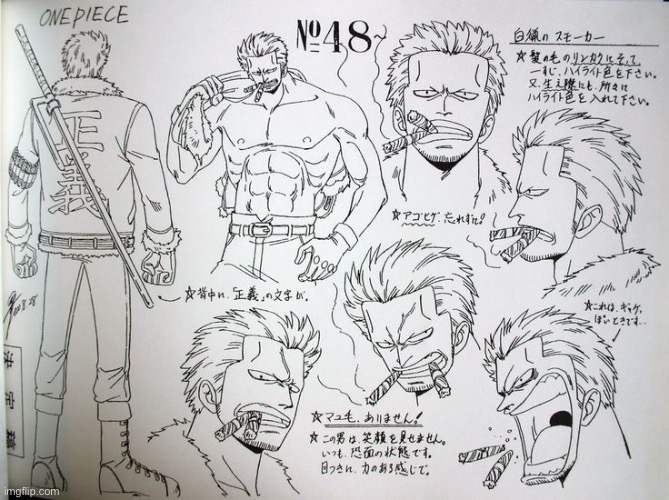 ONE PIECE
No 48~
白猟の スモーカー
☆ 髪の毛のリンカクにそって、
一すじ、ハイライト色を下さい。
又、生え際にも、所々に
ハイライト色を入れて下さい。
正義
☆アゴヒゲ、忘れずに!
☆背中に、「正義」の文字が。
☆これは、ギャグ
ぽいときです…
☆マユ毛、ありません!
☆この男は、笑顔を見せません。
いつも、恐面の状態です。
目つきに、力のある感じで。
imgflip.com